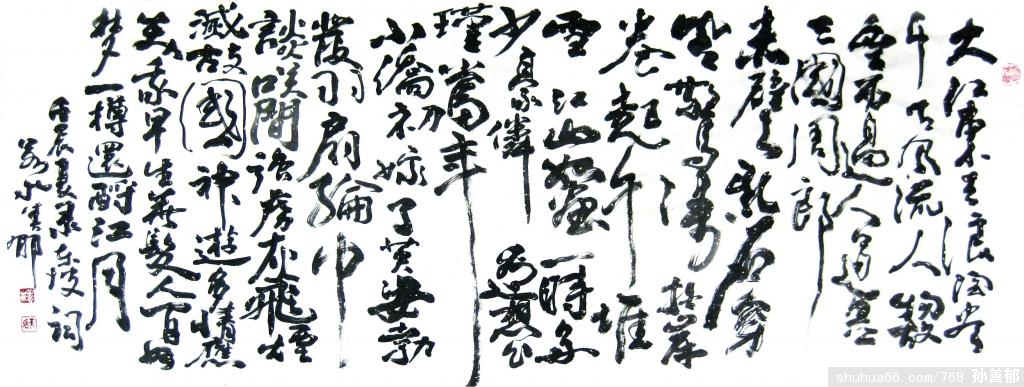 大江东去浪淘尽
千古风流人物故
垒西边人道是
三國周郎
赤壁乱石穿
空驚涛拍岸
卷起千堆
雪江山如畫一時多
少豪傑遥想公
瑾當年
小喬初嫁了英姿勃
發羽扇綸巾
談咲間強虜灰飛煙
滅故國神遊多情應
笑我早生華髮人间如
梦一樽還酹江月
壬辰夏录东坡词
shuhua66.com/768 孙善郁